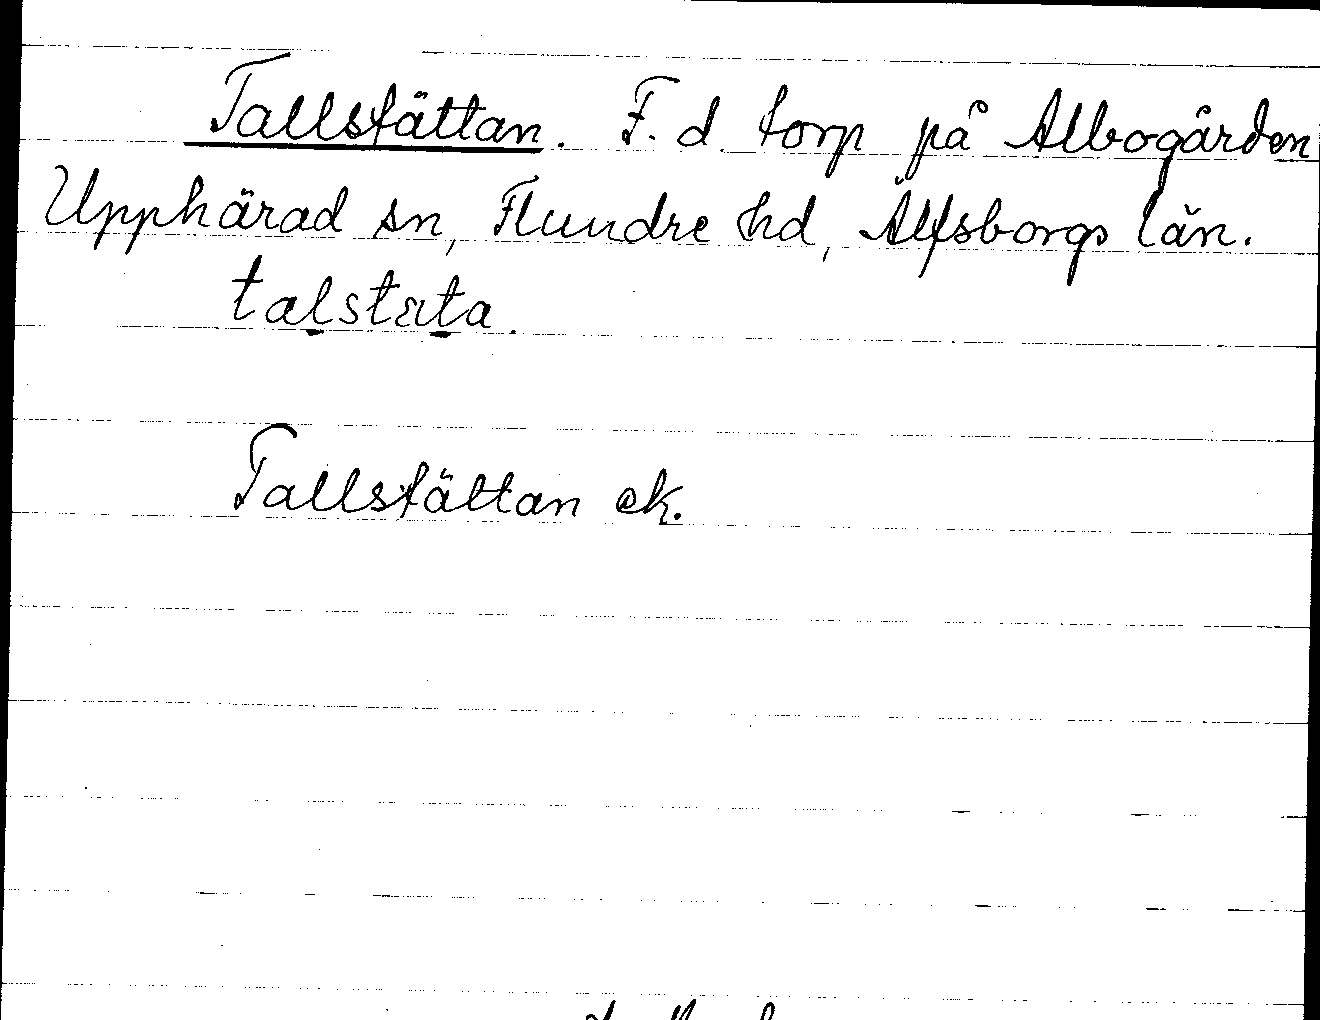 Tallstättan. F. d. torp på Albogården
Upphärad sn, Flundre hd, Älfsborgs län.
tal̠stæt̠a.
Tallstättan ek.